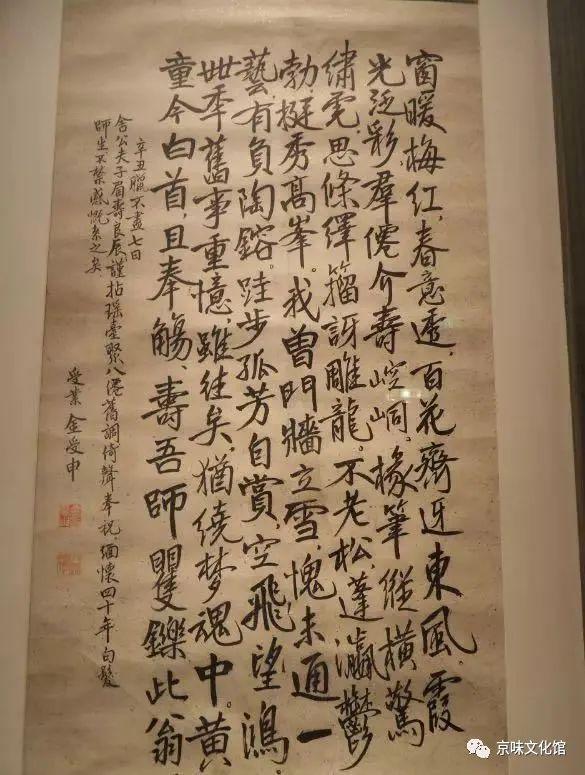 窗暖梅紅，春意透，百花齊迓東風。霞
光泛彩，羣僊介壽崆峒。椽筆縱橫驚
繡虎，思條繹籀訝雕龍。不老松，蓬瀛鬱
勃，挺秀高峯。我曾門牆立雪，愧未通一
藝，有負陶鎔。跬步孤芳自賞，空飛望鴻。
卌秊舊事重憶，雖往矣，猶繞梦魂中。黃
童今白首，且奉觴，壽吾師矍鑠此翁
辛丑臘不盡七日
舍公夫子眉壽良辰謹拈瑤臺聚八僊舊調倚聲奉祝，緬懷四十年白髮
師生不禁感慨系之矣
受業 金受申
京味文化馆